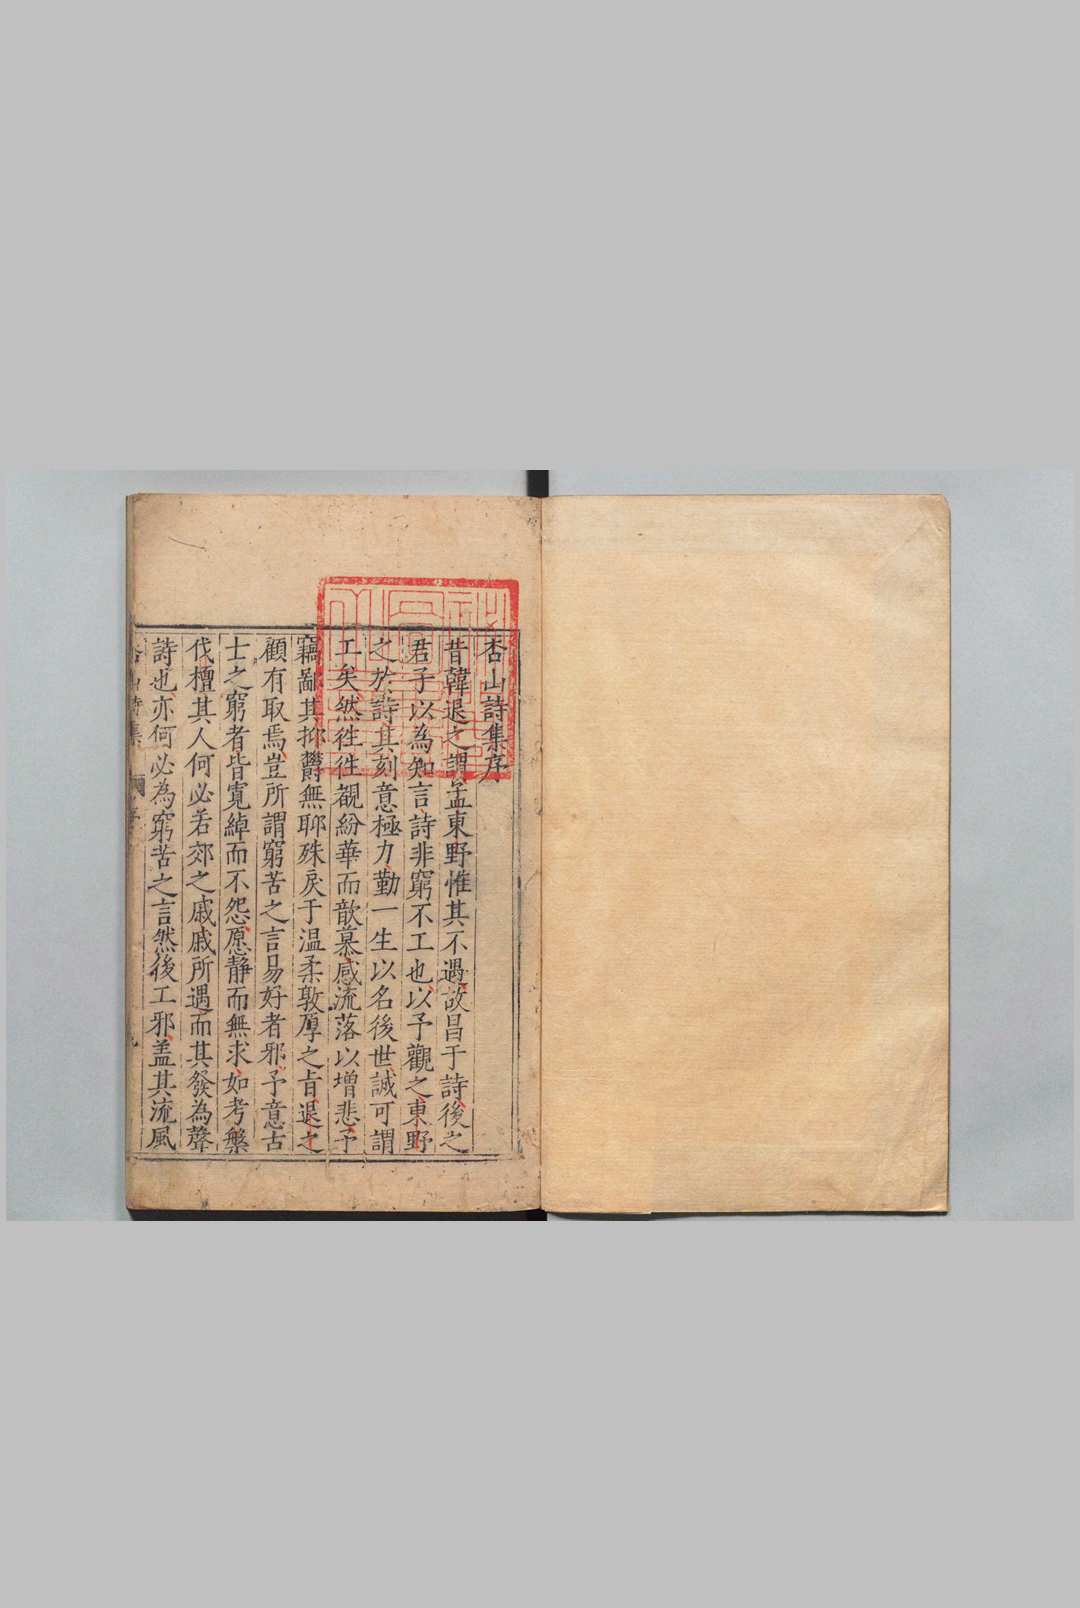 杏山詩集序
昔韓退之謂孟東野惟其不遇故昌于詩後之
君子以為知言詩非窮不工也以予觀之東野
之於詩其刻意極力勤一生以名後世誠可謂
工矣然徃徃覩紛華而歆慕感流落以增悲予
竊鄙其抑欝無聊殊戾于温柔敦厚之㫖退之
顧有取焉豈所謂窮苦之言易好者邪予意古
士之窮者皆寛綽而不怨愿靜而無求如考槃
伐檀其人何必若郊之戚戚所遇而其發為聲
詩也亦何必為窮苦之言然後工邪盖其流風
杏山詩集